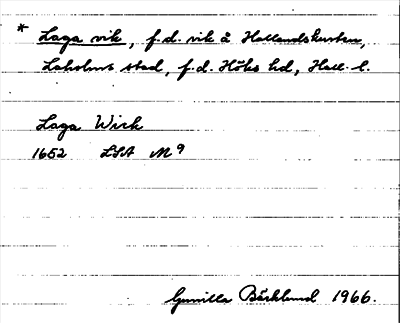 * Laga vik, f.d. vik å Hallandskusten,
Laholms stad, f.d. Höks hd, Hall. l.
Laga Wick
1652 LSA M9
Gunilla Bäcklund 1966.